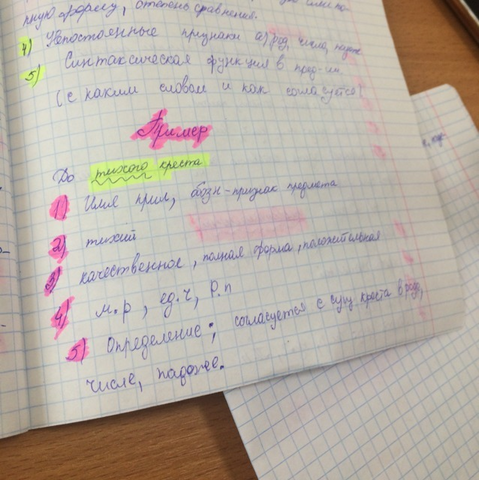 ную форму, степень сравнения.
4) Непостоянные признаки а) род, число, падеж
5) Синтаксическая функция в пред-ии
(с каким словом и как согласуется)
Пример
До тихого креста
1) Имя прил, обозн-признак предмета
2) тихий
3) качественное, полная форма, положительная
4) м.р, ед.ч, Р.п
5) Определение; согласуется с сущ. креста в роде,
числе, падеже.